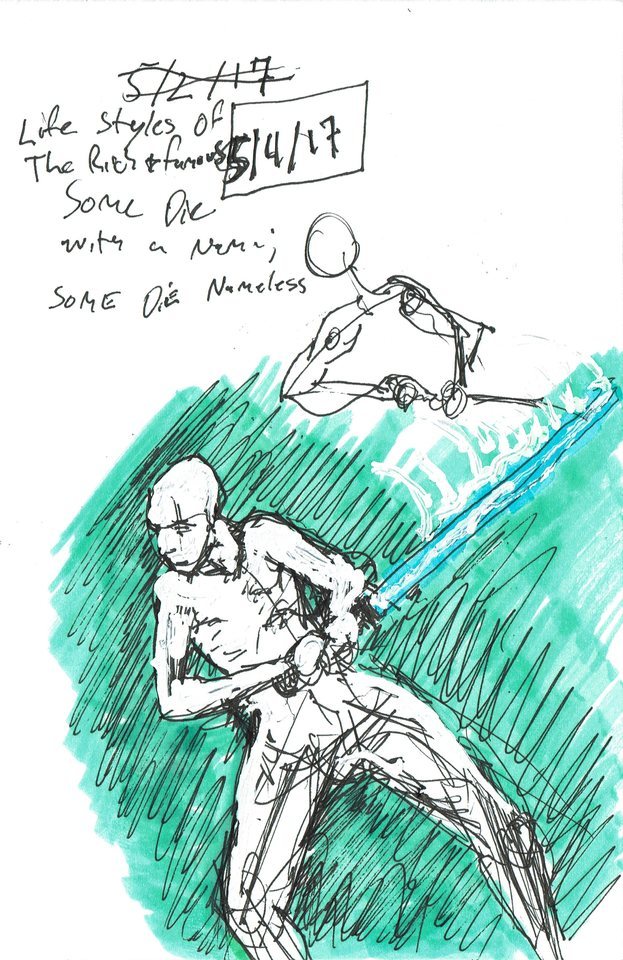 5/2/17
Life Styles of
The Rich & famous
5/4/17
Some Die
with a Name;
Some Die Nameless